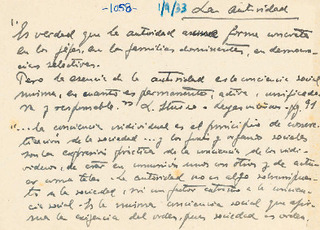 -1058- 1/9/33 La autoridad
"Es verdad que la autoridad asume forma concreta
en los jefes, en las familias dominantes, en democra-
cias selectivas.
Pero la esencia de la autoridad es la conciencia social
misma, en cuanto es permanente, activa, unificado-
ra y responsable." L. Sturzo - pg. 91
"... La conciencia individual es el principio de concre-
tización de la sociedad ... y órganos sociales
son la expresión práctica de la conciencia de los indi-
viduos, de estar en comunión unos con otros y de actu-
ar como tales. La autoridad no es algo
a la sociedad, ni un factor extraño a la concien-
cia social. Es la misma conciencia social que afir-
ma la exigencia del orden, pues sociedad es orden